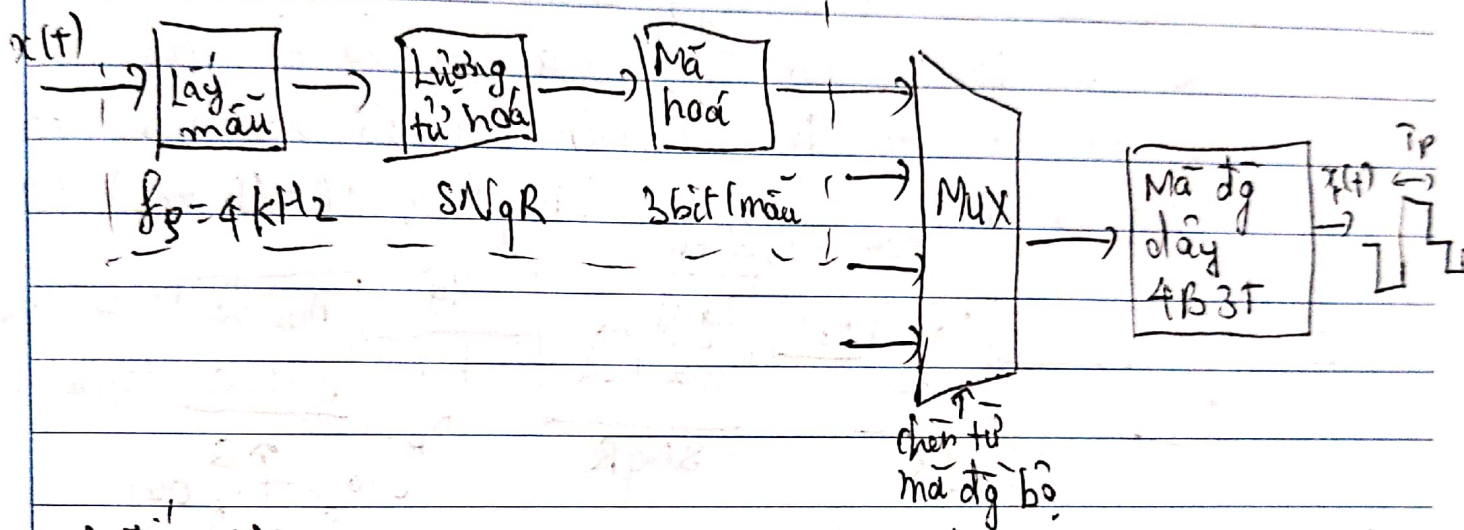 x(t)
Lấy
mẫu
Lượng
tử hoá
Mã
hoá
fs = 4kHz
SNqR
3bit/mẫu
MUX
Mã đg
dây
4B3T
Tp
chèn từ
mã đg bộ